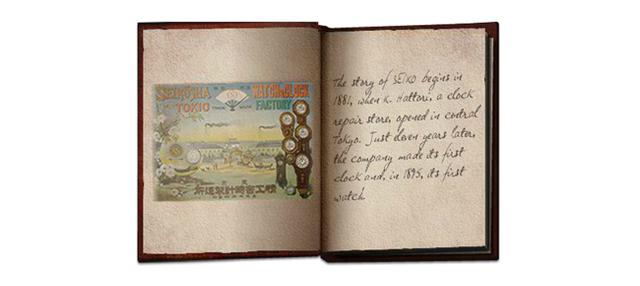 SEIKOSHA
TOKIO
TRADE MARK
WATCH & CLOCK
FACTORY
The story of SEIKO begins in
1881, when K. Hattori, a clock
repair store, opened in central
Tokyo. Just eleven years later,
the company made its first
clock and, in 1895, its first
watch